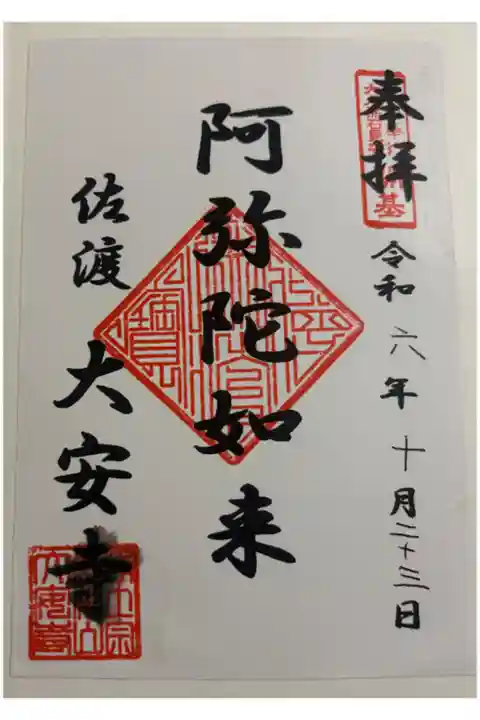 奉拝
令和六年十月二十三日
阿弥陀如来
佐渡 大安寺